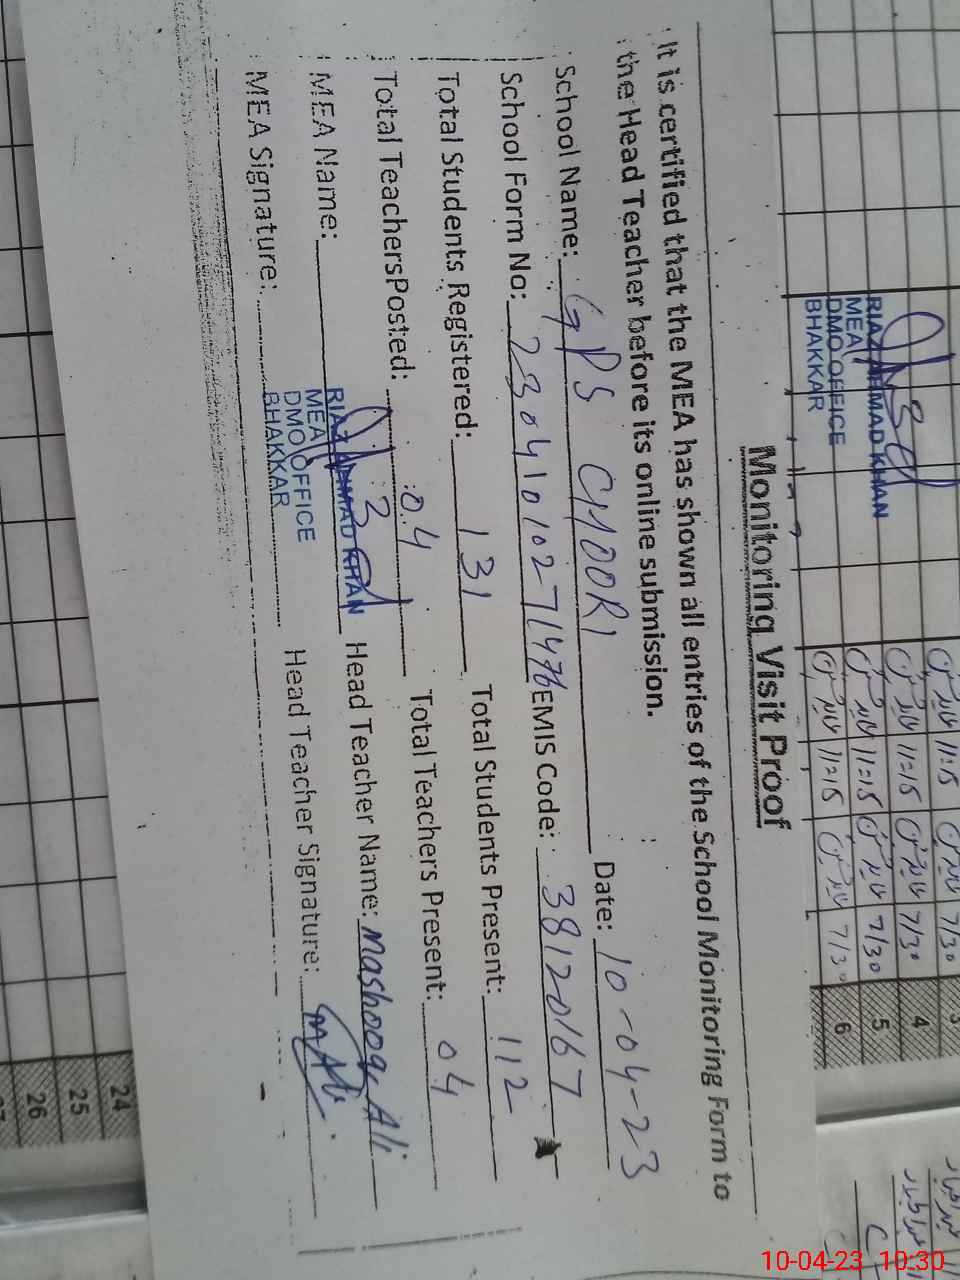 Monitoring Visit Proof
It is certified that the MEA has shown all entries of the School Monitoring Form to
the Head Teacher before its online submission.
School Name: GPS CHOORI Date: 10-04-23
School Form No: 2304101027 EMIS Code: 38120167
Total Students Registered: 131 Total Students Present: 112
Total TeachersPosted: 04 Total Teachers Present: 04
MEA Name: Head Teacher Name: Mashooq Ali
MEA Signature: Head Teacher Signature:
RIAZ AHMAD KHAN
MEA
DMO OFFICE
BHAKKAR
RIAZ AHMAD KHAN
MEA
DMO OFFICE
BHAKKAR
3 7/30 11:15
4 7/30 11=15
5 7/30 11=15
6 7/30 11=15
24
25
26
27
10-04-23 10:30